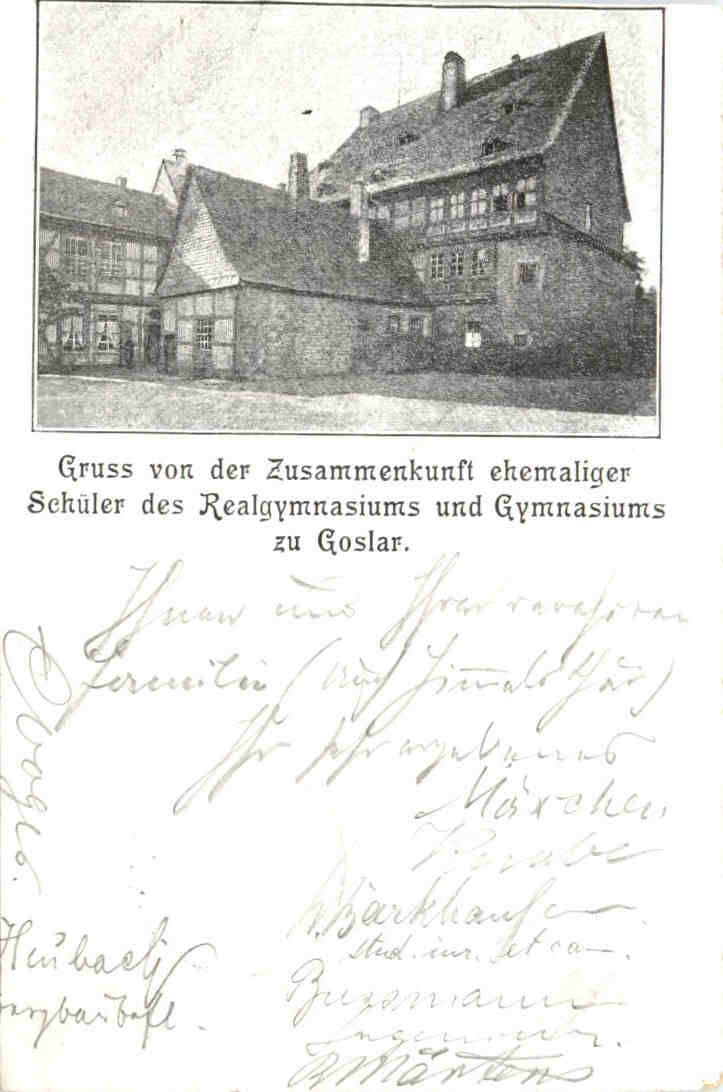 Gruss von der Zusammenkunft ehemaliger
Schüler des Realgymnasiums und Gymnasiums
zu Goslar.
Ihnen und Ihrer verehrten
Familie
Ihr sehr ergebener
Märchen
W. Barkhausen
stud. iur. et cam.
Bussmann
Ingenieur.
Märtens
Voges.
Heubach